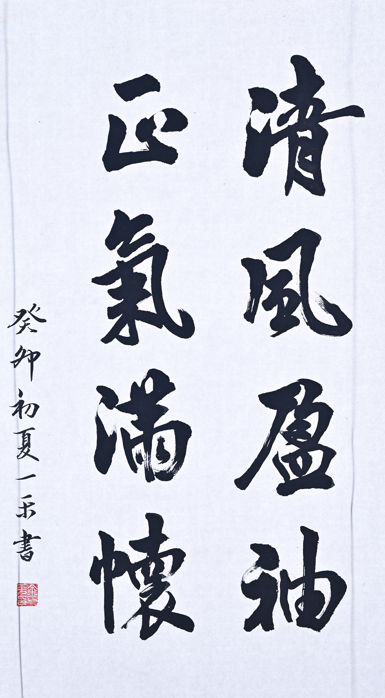 清風盈袖
正氣滿懷
癸卯初夏一禾書